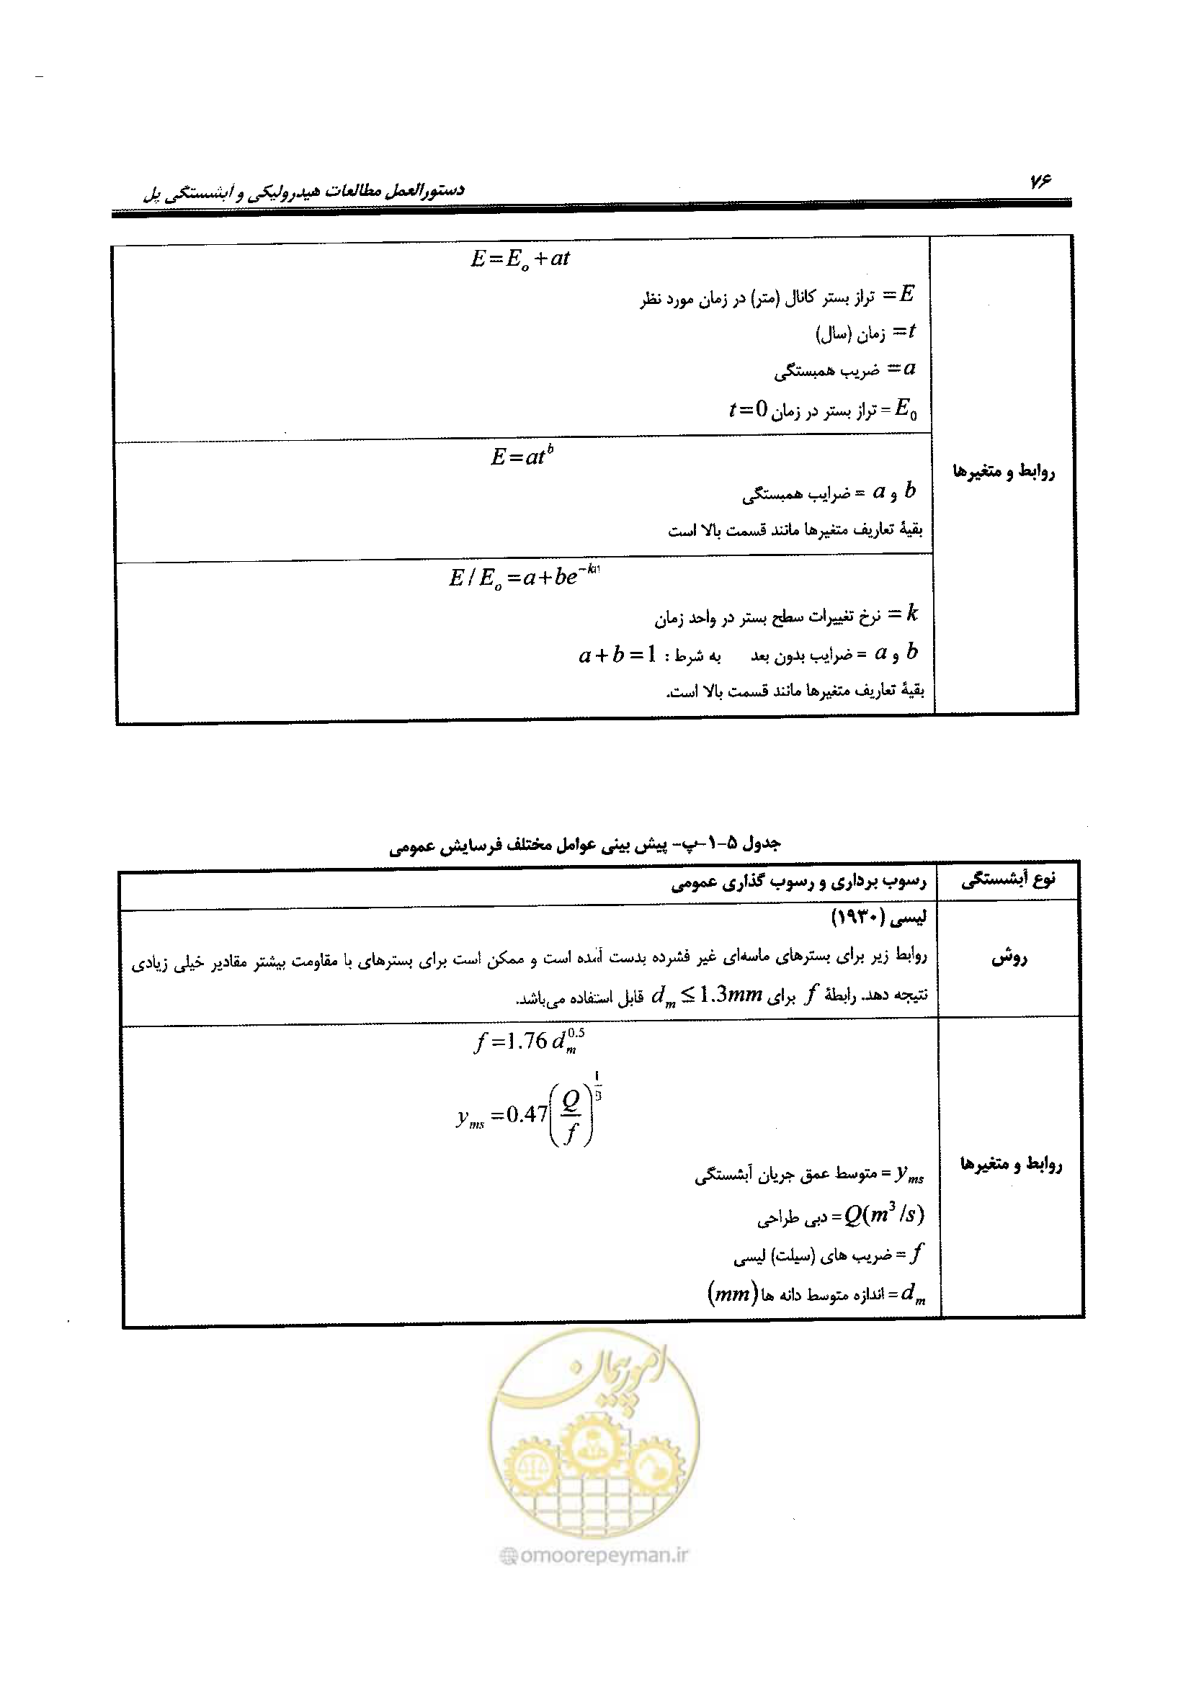 ۷۶
دستورالعمل مطالعات هیدرولیکی و آبشستگی پل
روابط و متغیرها
E = E₀ + at
E = تراز بستر کانال (متر) در زمان مورد نظر
t = زمان (سال)
a = ضریب همبستگی
E₀ = تراز بستر در زمان t = 0
E = at^b
b و a = ضرایب همبستگی
بقیهٔ تعاریف متغیرها مانند قسمت بالا است
E / E₀ = a + be^-kt
k = نرخ تغییرات سطح بستر در واحد زمان
b و a = ضرایب بدون بعد به شرط : a + b = 1
بقیهٔ تعاریف متغیرها مانند قسمت بالا است.
جدول ۵-۱-پ- پیش بینی عوامل مختلف فرسایش عمومی
نوع آبشستگی
رسوب برداری و رسوب گذاری عمومی
روش
لیسی (۱۹۳۰)
روابط زیر برای بسترهای ماسه‌ای غیر فشرده بدست آمده است و ممکن است برای بسترهای با مقاومت بیشتر مقادیر خیلی زیادی
نتیجه دهد. رابطهٔ f برای d_m ≤ 1.3mm قابل استفاده می‌باشد.
روابط و متغیرها
f = 1.76 d_m^0.5
y_ms = 0.47 (Q/f)^1/3
y_ms = متوسط عمق جریان آبشستگی
Q(m³/s) = دبی طراحی
f = ضریب های (سیلت) لیسی
d_m = اندازه متوسط دانه ها (mm)
امور پیمان
@omoorepeyman.ir